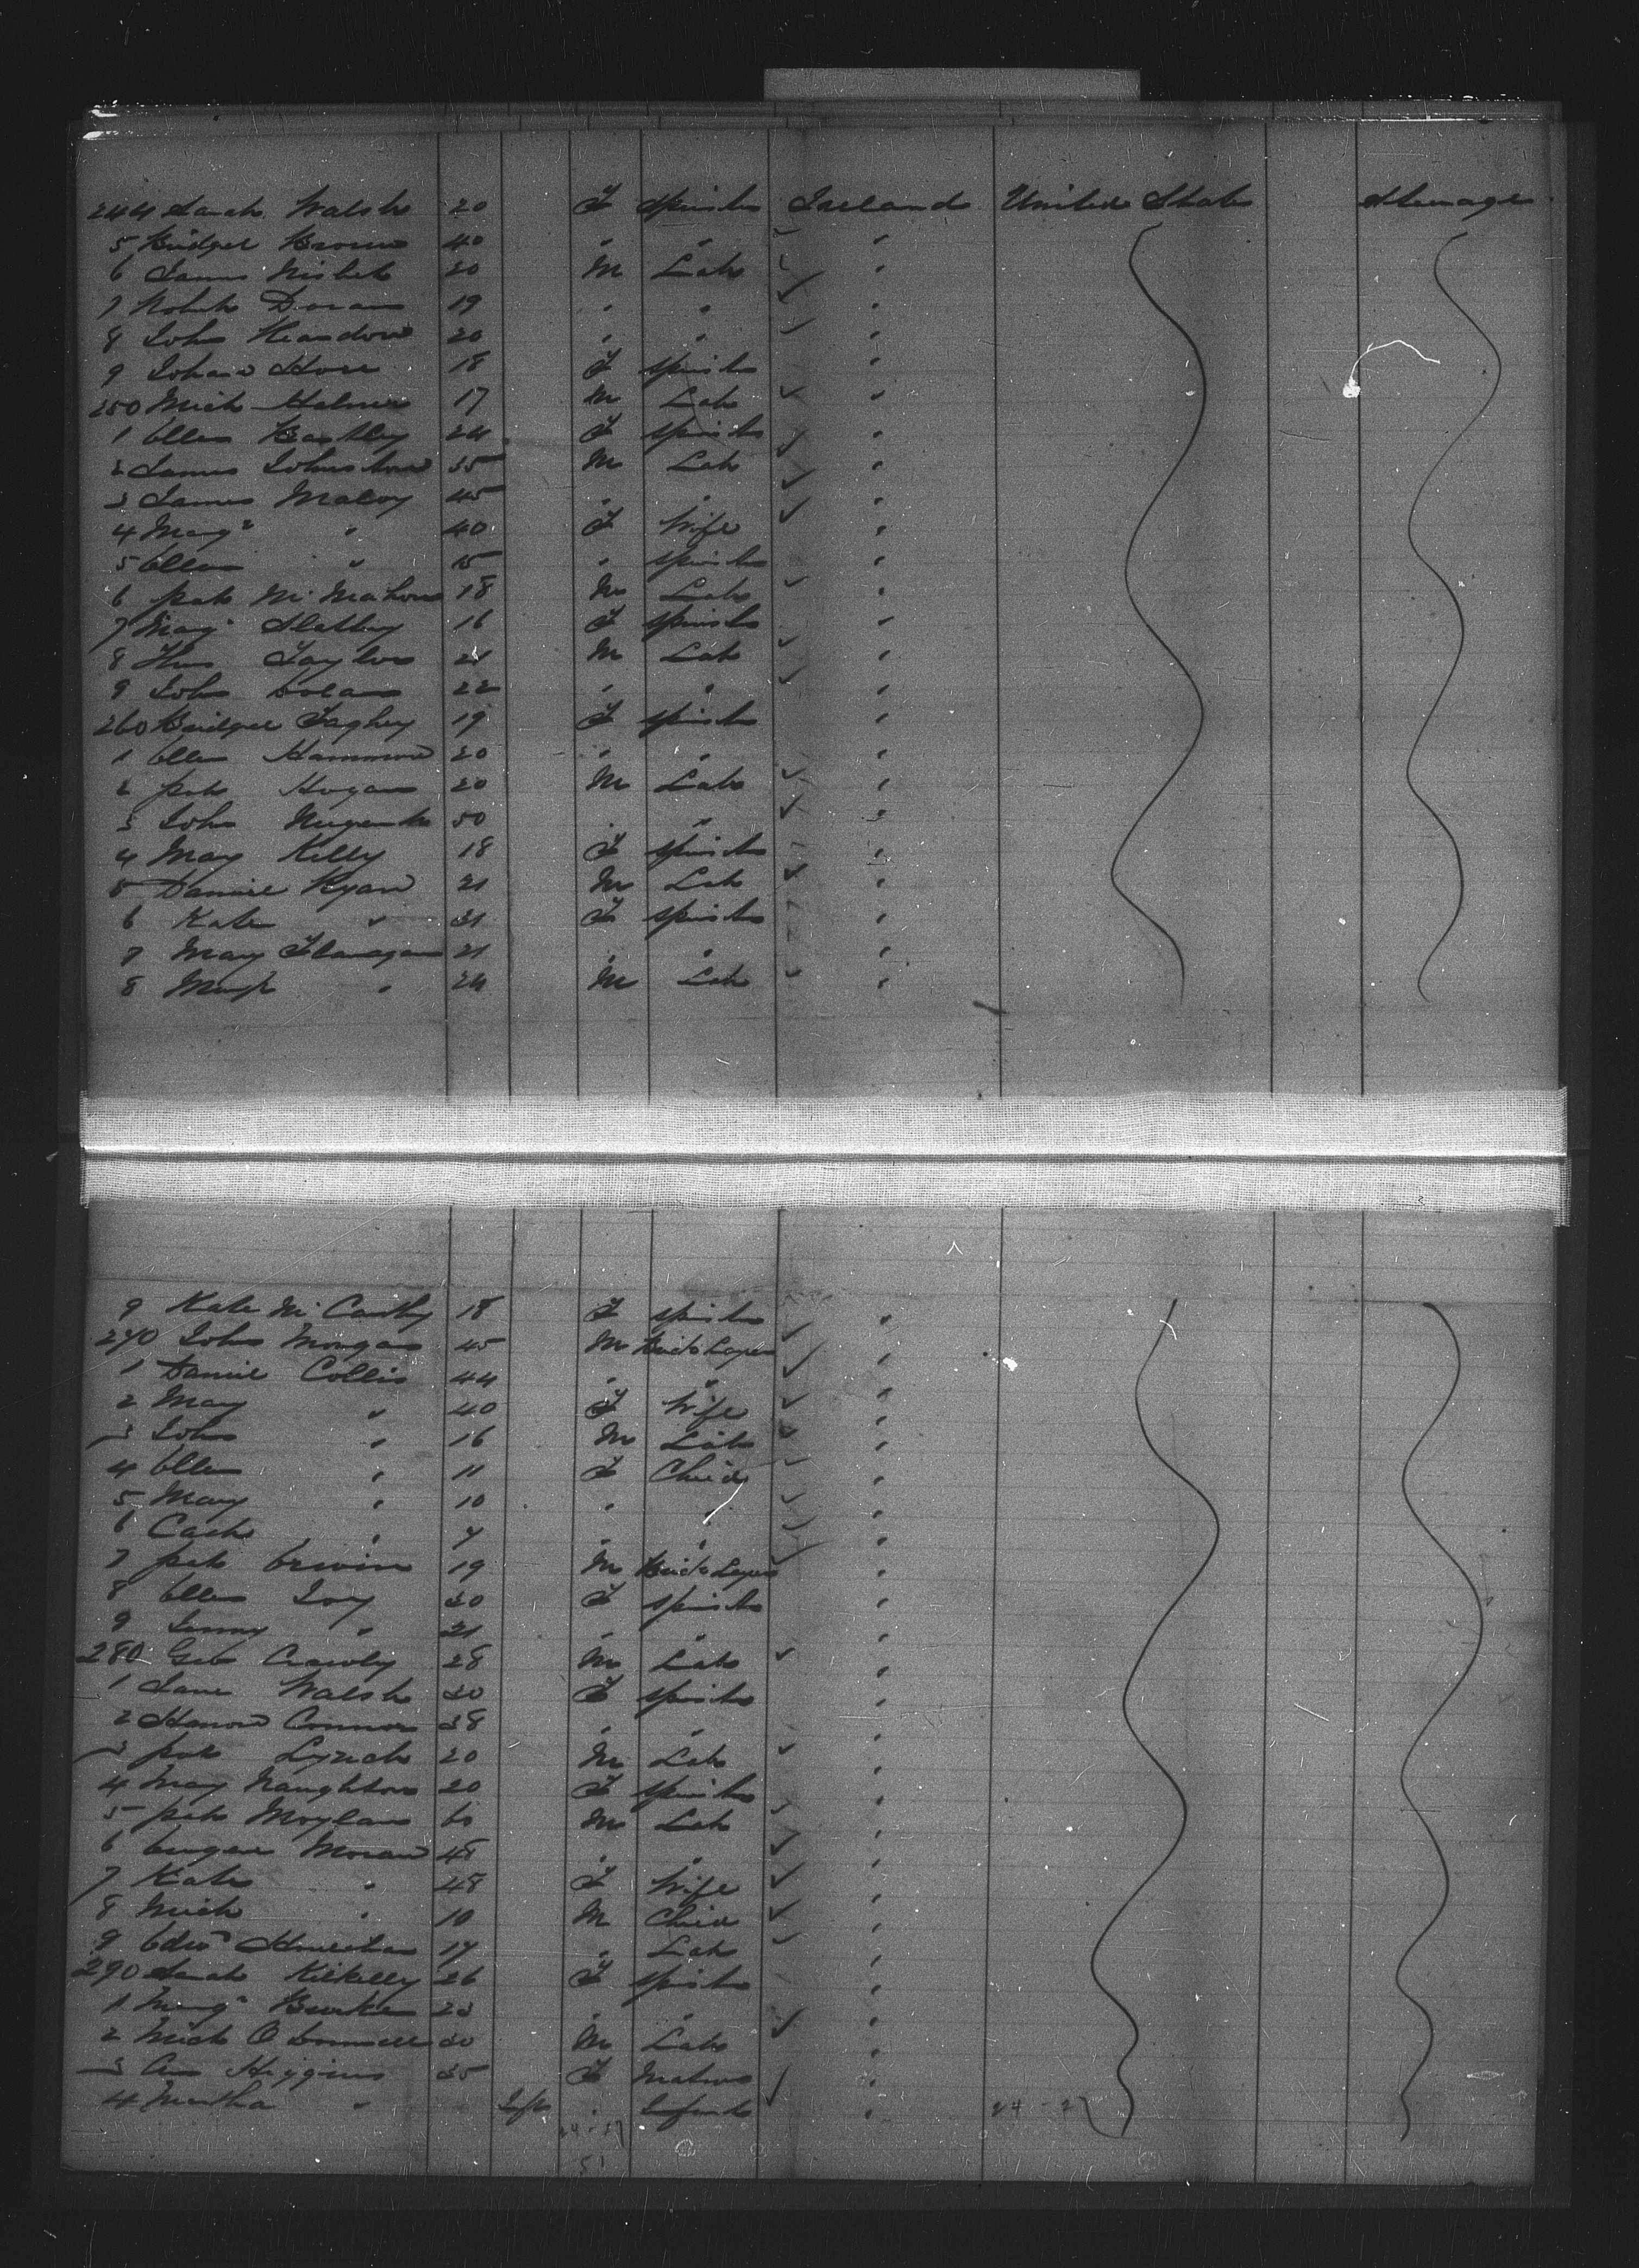 244 Sarah Walsh 20 F Spinster Ireland United States Steerage
5 Bridget Brown 40 " " "
6 James Nisbet 20 M Lab "
7 Doran 19 " " "
8 John 20 " " "
9 Hore 18 F Spinster "
250 Mich 17 M Lab "
1 Ellen 24 F Spinster "
2 James Johnston 35 M Lab "
3 James Maloy 45 " " "
4 Margt " 40 F Wife "
5 Ellen " 15 " Spinster "
6 Pat McMahon 18 M Lab "
7 Slattery 16 F Spinster "
8 Thos Taylor 21 M Lab "
9 John 22 " " "
260 Bridget Faghey 19 F Spinster "
1 Ellen Hammond 20 " " "
2 Pat Hogan 20 M Lab "
3 John Nugent 50 " " "
4 Mary Kelly 18 F Spinster "
5 Daniel Ryan 21 M Lab "
6 Kate " F Spinster "
7 Mary Flanagan 21 " " "
8 " 24 M Lab "
9 Kate McCarthy 18 F Spinster "
270 John Morgan 45 M Brick Layer "
1 Daniel Collis 44 " " "
2 Mary " 40 F Wife "
3 John " 16 M Lab "
4 Ellen " 11 F Child "
5 Mary " 10 " " "
6 Cath " 7 " " "
7 Pat Erwin 19 M Brick Layer "
8 Ellen Ivy F Spinster "
9 " 21 " " "
280 Geo Crawly 28 M Lab "
1 Jane Walsh F Spinster "
2 Connor 38 " " "
3 Pat Lynch 20 M Lab "
4 Mary Naughton 20 F Spinster "
5 Pat Moylan 60 M Lab "
6 Eugene Moran 48 " " "
7 Kate " 48 F Wife "
8 Mich " 10 M Child "
9 Edwd 17 " Lab "
290 Sarah Kilkelly 26 F Spinster "
1 Margt Burke " " "
2 Mich O Donnell M Lab "
3 Ann Higgins 35 F Matron "
4 Martha " Inft " Infant "